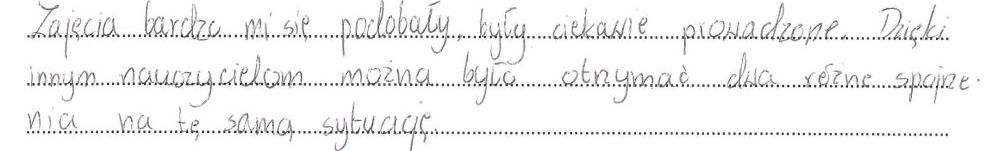 Zajęcia bardzo mi się podobały, były ciekawie prowadzone. Dzięki
innym nauczycielom można było otrzymać dwa różne spojrze-
nia na tę samą sytuację.